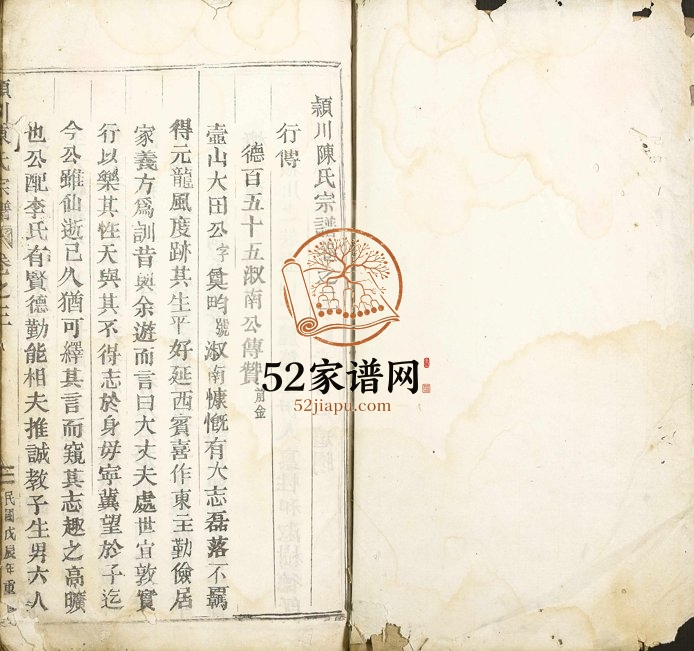 穎川陳氏宗譜
行傳
德百五十五淑南公傳贊
壺山大田公字奠畇號淑南慷慨有大志磊落不羈
得元龍風度跡其生平好延西賓喜作東主勤儉居
家義方爲訓昔與余遊而言曰大丈夫處世宜敦實
行以樂其性天與其不得志於身毋寧冀望於子迄
今公雖仙逝已久猶可繹其言而窺其志趣之高曠
也公配李氏有賢德勤能相夫推誠教子生男六人
民國戊辰年重
52家谱网
52jiapu.com